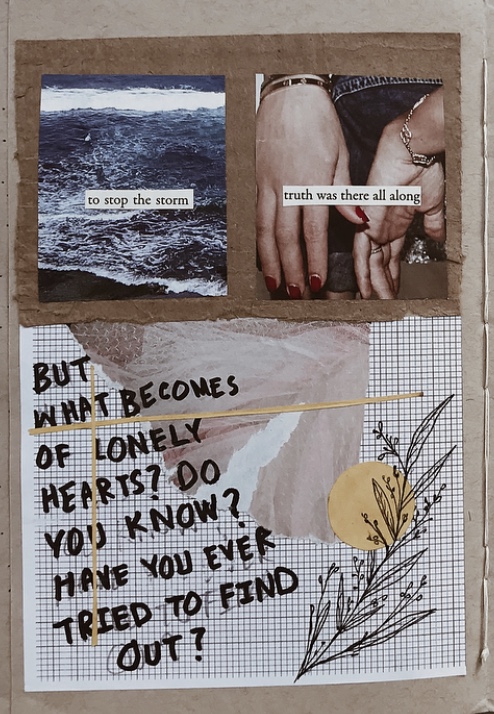 to stop the storm
truth was there all along
BUT
WHAT BECOMES
OF LONELY
HEARTS? DO
YOU KNOW?
HAVE YOU EVER
TRIED TO FIND
OUT?